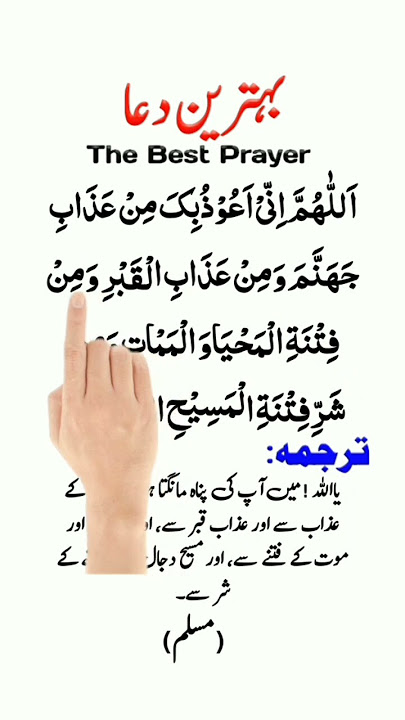 بہترین دعا
The Best Prayer
اَللّٰهُمَّ اِنِّیْ اَعُوْذُبِکَ مِنْ عَذَابِ
جَهَنَّمَ وَمِنْ عَذَابِ الْقَبْرِ وَمِنْ
فِتْنَةِ الْمَحْيَا وَ الْمَمَاتِ
شَرِّ فِتْنَةِ الْمَسِيْحِ
ترجمه:
یااللہ ! میں آپ کی پناہ مانگتا کے
عذاب سے اور عذاب قبر سے، اور اور
موت کے فتنے سے، اور مسیح دجال کے
شر سے۔
(مسلم)